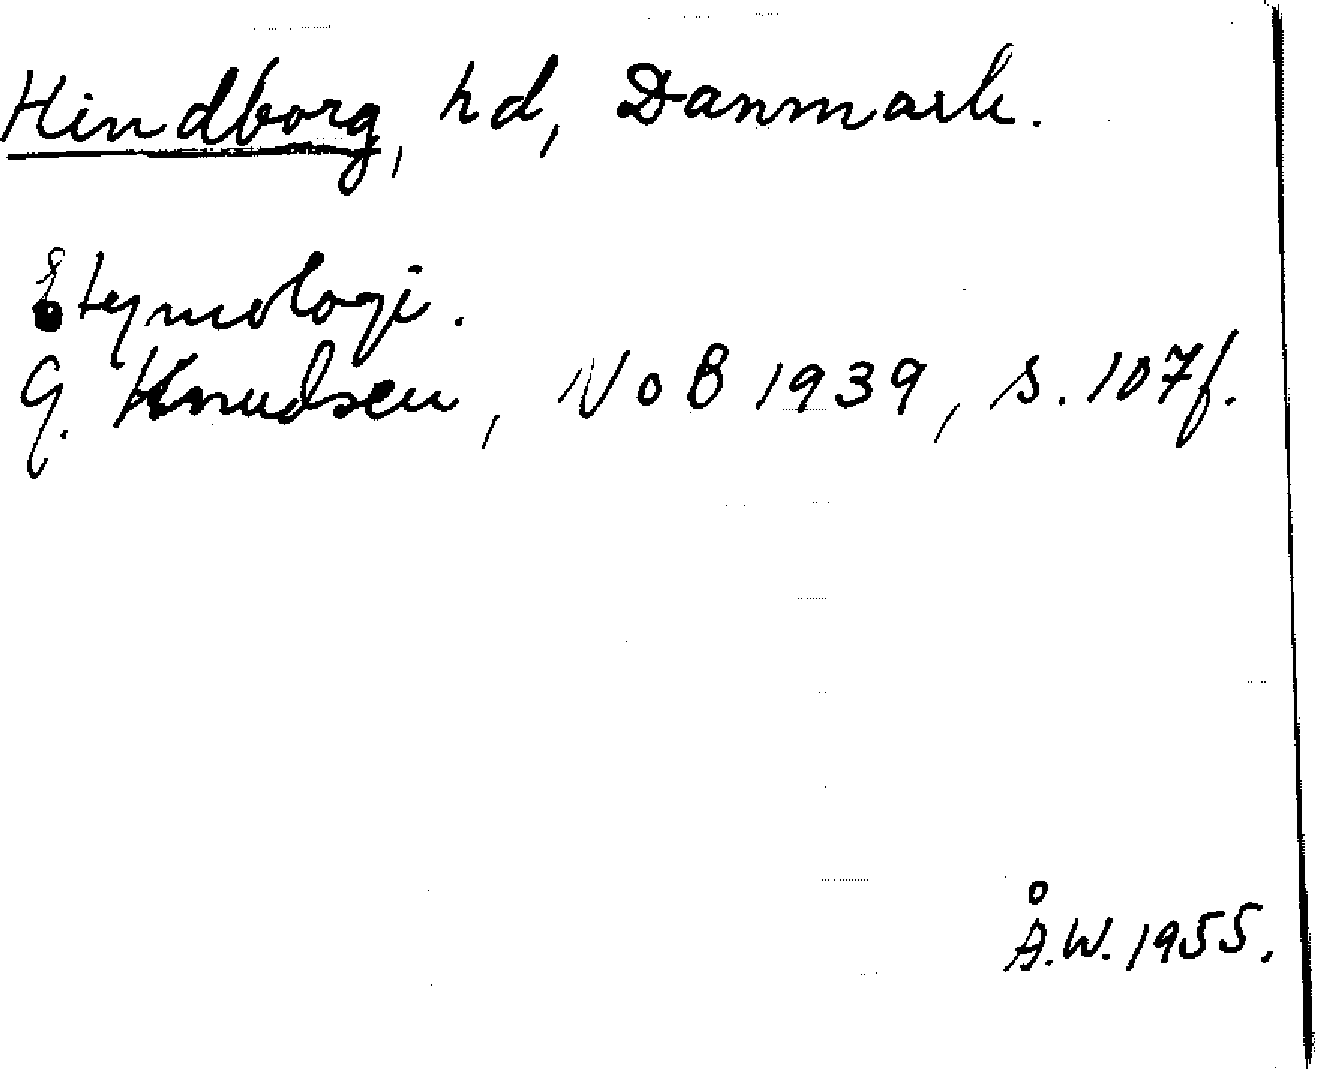 Hindborg, hd, Danmark.
Etymologi.
G. Knudsen, NoB 1939, s. 107f.
Å.W. 1955.